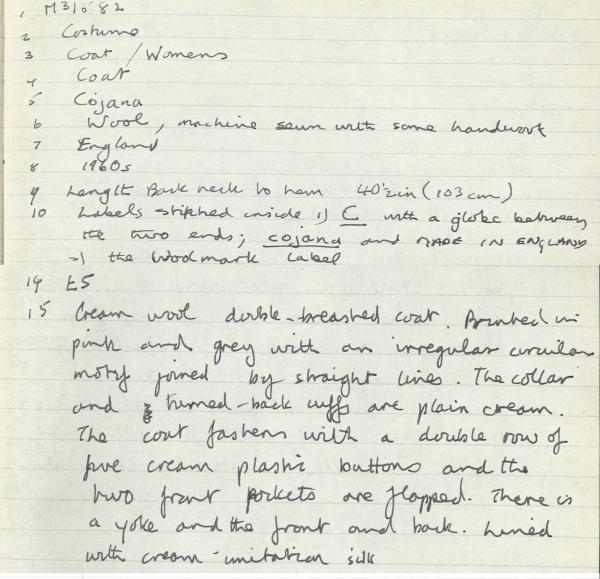 1 M316'82
2 Costume
3 Coat / Womens
4 Coat
5 Cojana
6 Wool, machine sewn with some handwork
7 England
8 1960s
9 Length Back neck to hem 40½in (103cm)
10 Labels stitched inside 1) C with a globe between
the two ends; cojana and MADE IN ENGLAND
2) the Woolmark Label
14 E5
15 Cream wool double-breasted coat. Printed in
pink and grey with an irregular circular
motif joined by straight lines. The collar
and turned-back cuffs are plain cream.
The coat fastens with a double row of
five cream plastic buttons and the
two front pockets are flapped. There is
a yoke and the front and back. Lined
with cream imitation silk